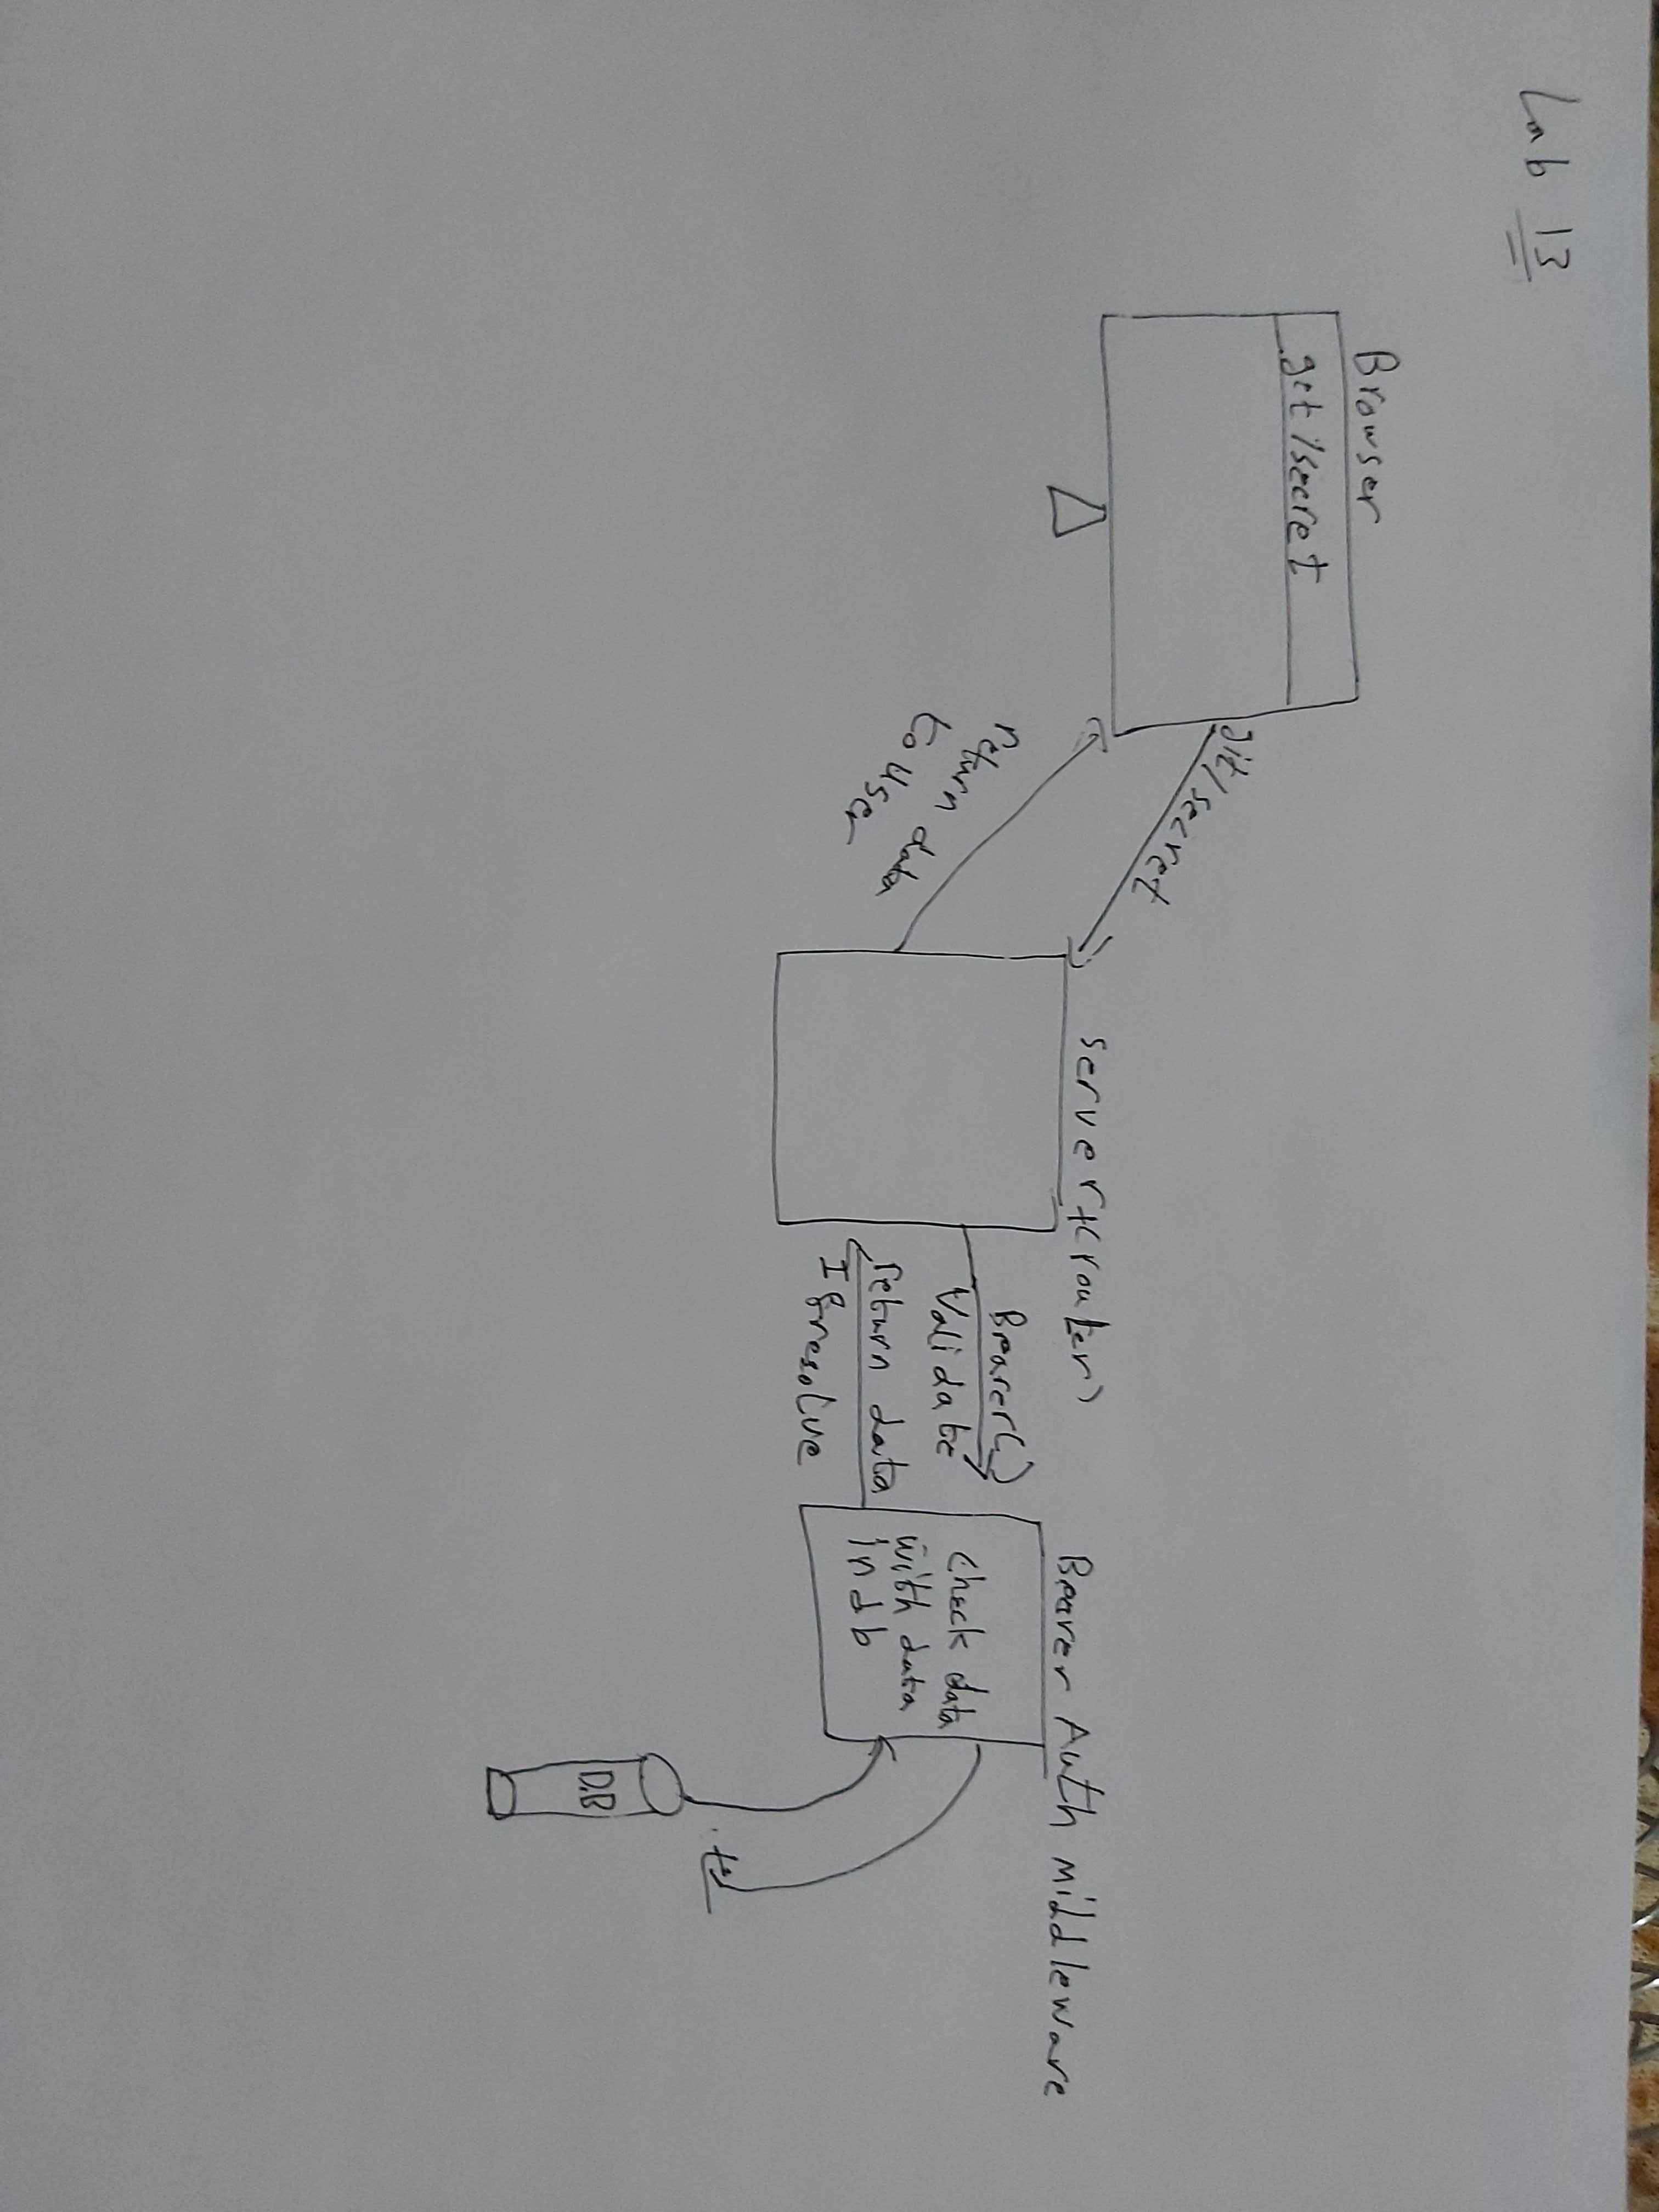 Lab 13
Browser
get /secret
git/secret
return data
to user
server+(router)
Bearer()
Validate
return data
If resolve
Bearer Auth middleware
check data
with data
in db
DB